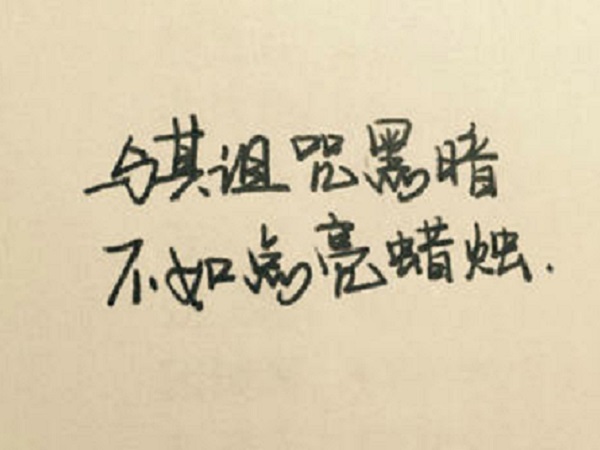 与其诅咒黑暗
不如点亮蜡烛.